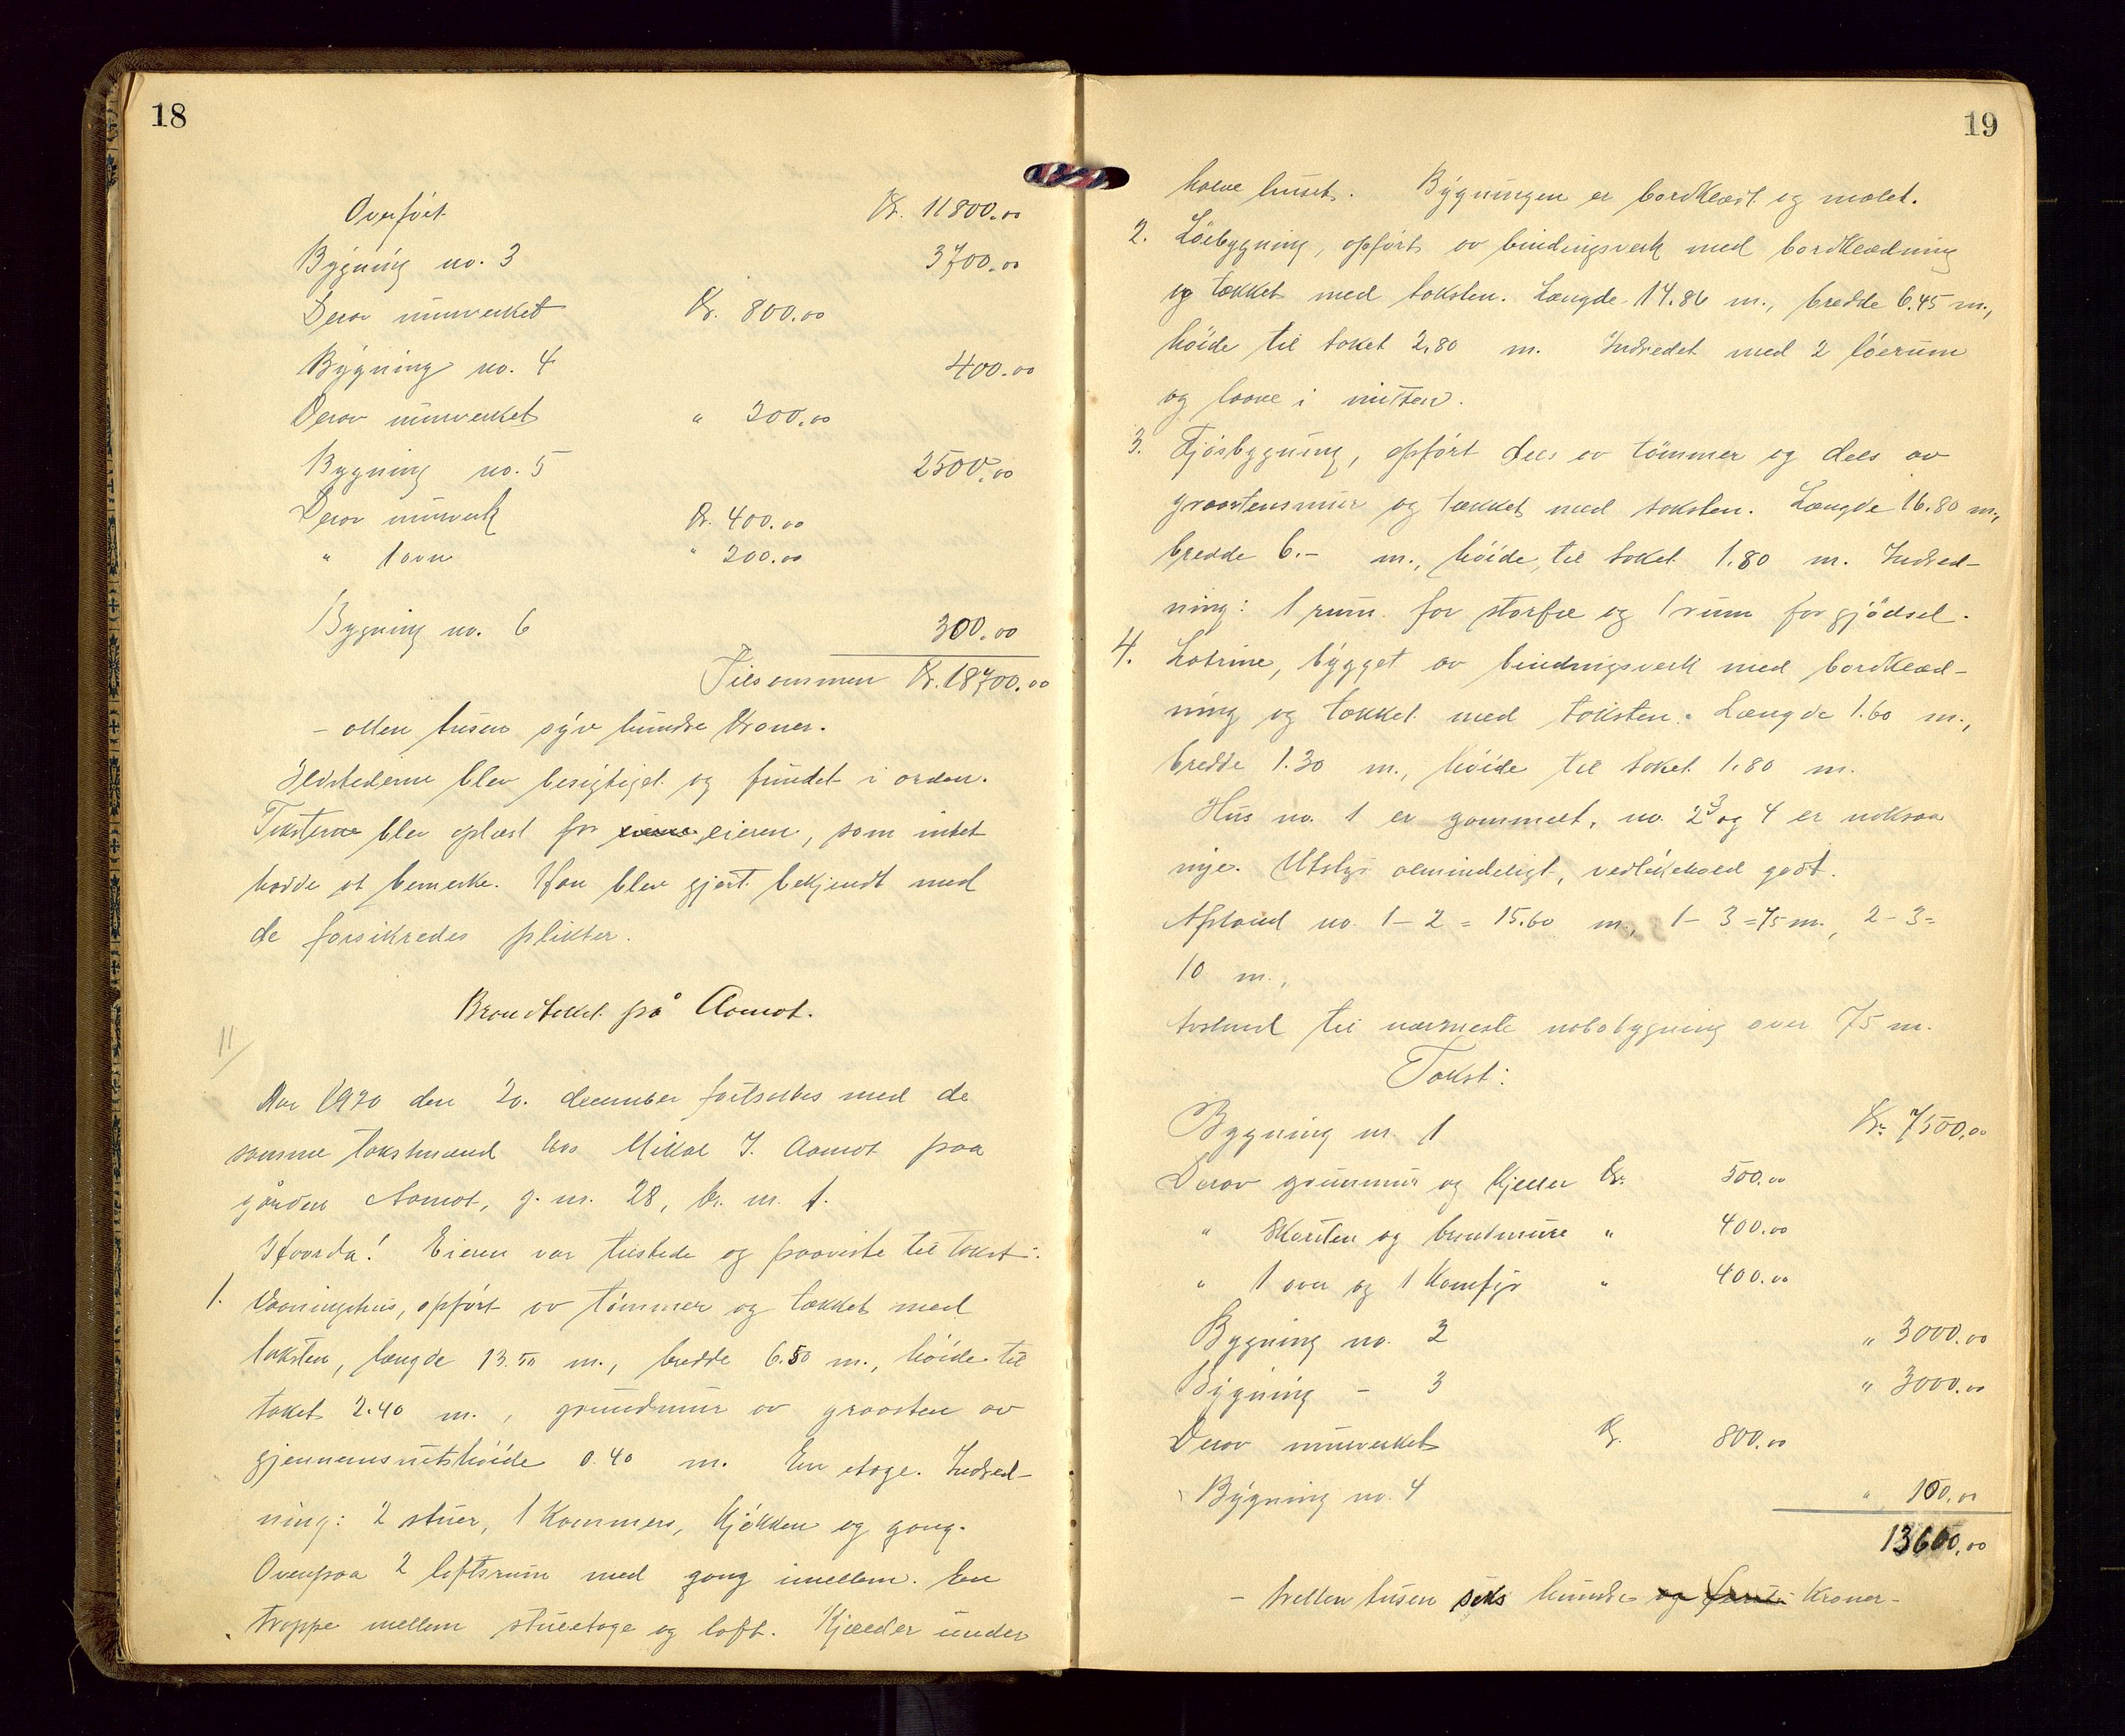 18
Overført Kr. 11800.00
Bygning no. 3 3700.00
Derav murverket Kr. 800.00
Bygning no. 4 400.00
Derav murverket " 200.00
Bygning no. 5 2500.00
Derav murverk Kr. 400.00
" 1 ovn " 200.00
Bygning no. 6 300.00
Tilsammen Kr. 18700.00
- atten tusen syv hundre kroner.
Ildstederne blev besigtiget og fundet i orden.
Taksterne blev oplæst for eieren, som intet
hadde at bemerke. Han blev gjort bekjendt med
de forsikredes plikter.
Brandtakst på Aamot.
11/
Aar 1920 den 20. december fortsattes med de
samme takstmænd hos Mikal J. Aamot paa
gården Aamot, g. nr. 28, br. nr. 1.
Hvorda! Eieren var tilstede og paaviste til takst:
1. Vaaningshus, opført av tømmer og tækket med
taksten, længde 13.50 m., bredde 6.50 m., høide til
taket 2.40 m., grundmur av graasten av
gjennemsnitshøide 0.40 m. En etage. Indred-
ning: 2 stuer, 1 kammers, kjøkken og gang.
Ovenpaa 2 loftsrum med gang imellem. En
trappe mellem stueetage og loft. Kjælder under
19
halve huset. Bygningen er bordklædt og malet.
2. Løebygning, opført av bindingsverk med bordklædning
og tækket med taksten. Længde 14.86 m., bredde 6.45 m.,
høide til taket 2,80 m. Indredet med 2 løerum
og laave i midten.
3. Fjøsbygning, opført dels av tømmer og dels av
graastensmur og tækket med taksten. Længde 16.80 m.,
bredde 6.- m., høide til taket 1.80 m. Indred-
ning: 1 rum for storfæ og 1 rum for gjødsel.
4. Latrine, bygget av bindingsverk med bordklæd-
ning og tækket med taksten. Længde 1.60 m.,
bredde 1.30 m., høide til taket 1.80 m.
Hus no. 1 er gammelt, no. 2 3 og 4 er noksaa
nye. Utstyr almindeligt, vedlikehold godt.
Afstand no. 1 - 2 = 15.60 m., 1 - 3 = 75 m., 2 - 3 =
10 m.,
Avstand til nærmeste nabobygning over 75 m.
Takst:
Bygning nr. 1 Kr. 7500.00
Derav grunnmur og kjeller Kr. 500.00
" Skorsten og brandmure " 400.00
" 1 ovn og 1 komfyr " 400.00
Bygning no. 2 " 3000.00
Bygning - 3 " 3000.00
Derav murverket Kr. 800.00
Bygning no. 4 " 100.00
13600.00
- tretten tusen seks hundre og kroner -